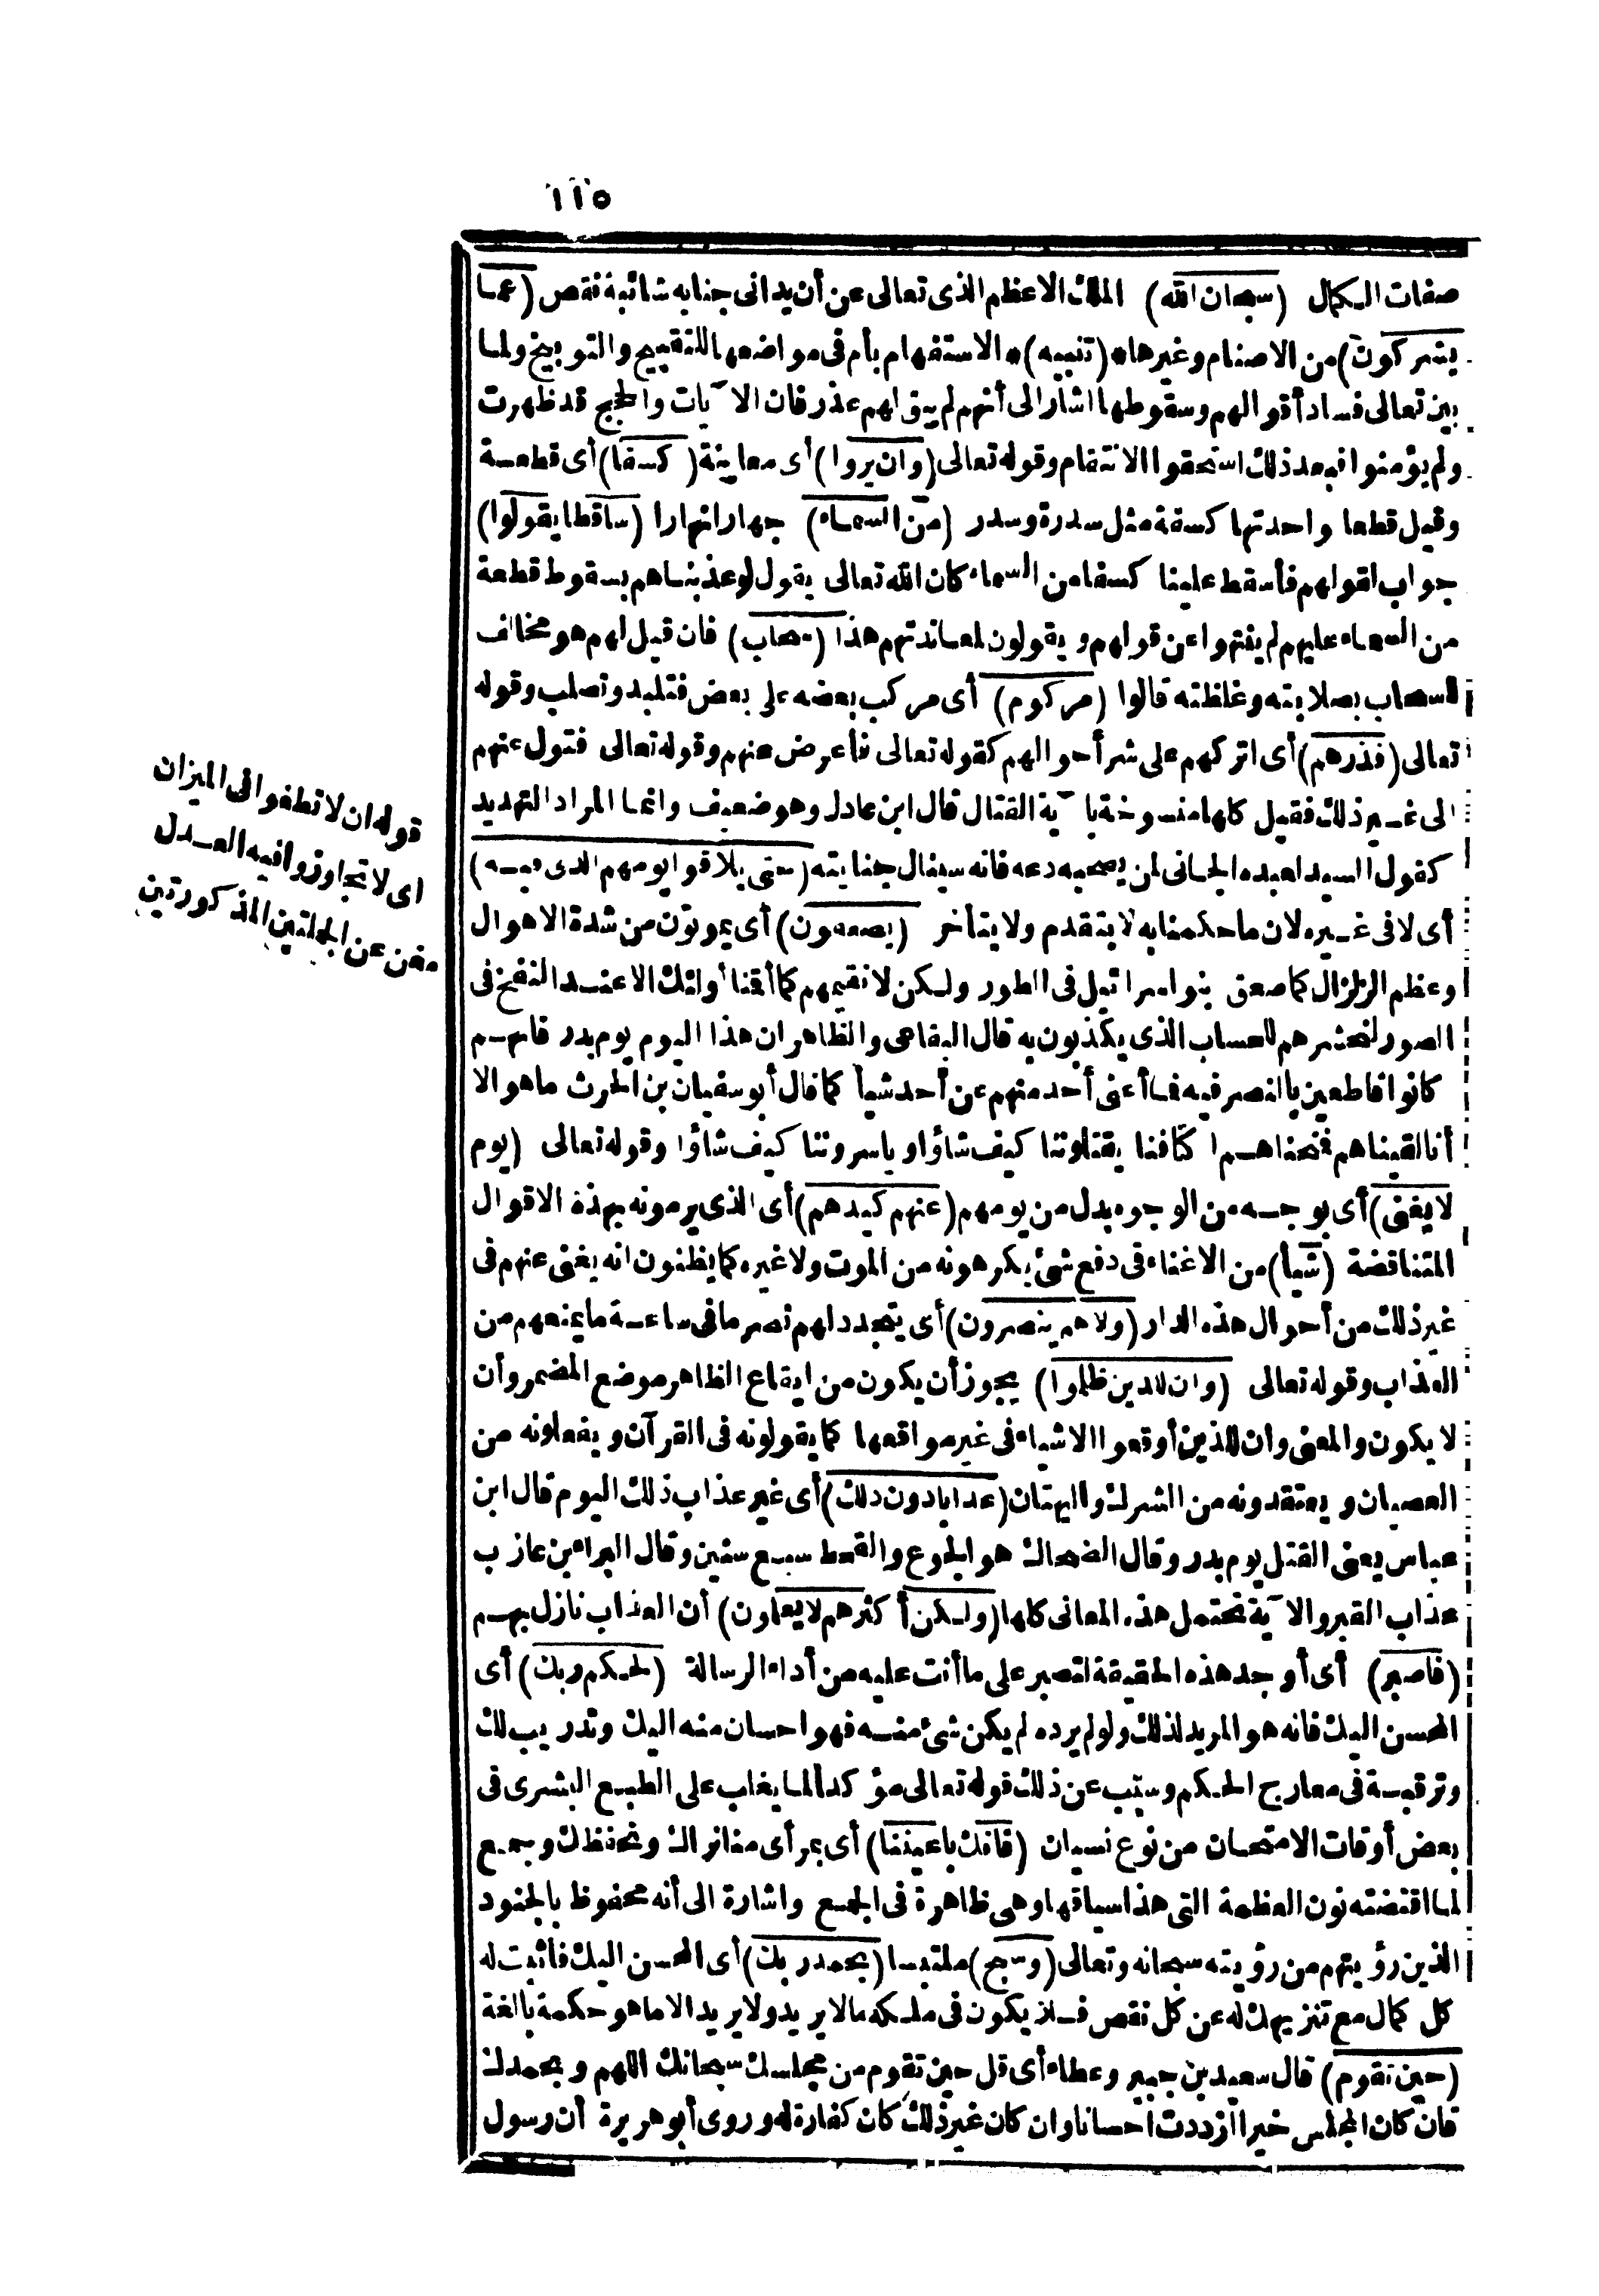 ١١٥
صفات الكمال (سبحان الله) الملك الاعظم الذى تعالى عن أن يدانى جنابه شائبة نقص (عما
يشركون) من الاصنام وغيرها * (تنبيه) * الاستفهام بأم فى مواضعها للتقبيح والتوبيخ ولما
بين تعالى فساد أقوالهم وسقوطها اشار الى أنهم لم يبق لهم عذر فان الآيات والحجج قد ظهرت
ولم يؤمنوا فبعد ذلك استحقوا الانتقام وقوله تعالى (وان يروا) أى معاينة (كسفا) أى قطعة
وقيل قطعا واحدتها كسفة مثل سدرة وسدر (من السماء) جهارا نهارا (ساقطا يقولوا)
جواب لقولهم فأسقط علينا كسفا من السماء كان الله تعالى يقول لو عذبناهم بسقوط قطعة
من السماء عليهم لم ينتهوا عن قولهم ويقولون لمعاندتهم هذا (سحاب) فان قيل لهم هو مخالف
للسحاب بصلابته وغلظته قالوا (مركوم) أى مركب بعضه على بعض فتلبد وتصلب وقوله
تعالى (فذرهم) أى اتركهم على شر أحوالهم كقوله تعالى فأعرض عنهم وقوله تعالى فتول عنهم
الى غير ذلك فقيل كلها منسوخة بآية القتال قال ابن عادل وهو ضعيف وانما المراد التهديد
كقول السيد لعبده الجانى لمن يصحبه دعه فانه سينال جنايته (حتى يلاقوا يومهم الذى فيه)
أى لا فى غيره لان ما حكمنا به لا يتقدم ولا يتأخر (يصعقون) أى يموتون من شدة الاهوال
وعظم الزلزال كما صعق بنو اسرائيل فى الطور ولكن لا نقيمهم كما أقمنا أولئك الا عند النفخ فى
الصور لنحشرهم للحساب الذى يكذبون به قال البقاعى والظاهر ان هذا اليوم يوم بدر فانهم
كانوا قاطعين بالنصر فيه فما أغنى أحد منهم عن أحد شيأ كما قال أبو سفيان بن الحرث ما هو الا
أنا لقيناهم فمنحناهم اكتافنا يقتلوننا كيف شاؤا و ياسروننا كيف شاؤا وقوله تعالى (يوم
لا يغنى) أى بوجه من الوجوه بدل من يومهم (عنهم كيدهم) أى الذى يرمونه بهذه الاقوال
المتناقضة (شيأ) من الاغناء فى دفع شئ يكرهونه من الموت ولا غيره كما يظنون انه يغنى عنهم فى
غير ذلك من أحوال هذه الدار (ولا هم ينصرون) أى يتجدد لهم نصر ما فى ساعة ما يمنعهم من
العذاب وقوله تعالى (وان للذين ظلموا) يجوز أن يكون من ايقاع الظاهر موضع المضمر وأن
لا يكون والمعنى وان للذين أوقعوا الاشياء فى غير مواقعها كما يقولونه فى القرآن ويفعلونه من
العصيان ويعتقدونه من الشرك والبهتان (عذابا دون ذلك) أى غير عذاب ذلك اليوم قال ابن
عباس يعنى القتل يوم بدر وقال الضحاك هو الجوع والقحط سبع سنين وقال البراء بن عازب
عذاب القبر والآية تحتمل هذه المعانى كلها (ولكن أكثرهم لا يعلمون) أن العذاب نازل بهم
(فاصبر) أى أوجد هذه الحقيقة لتصبر على ما أنت عليه من أداء الرسالة (لحكم ربك) أى
المحسن اليك فانه هو المريد لذلك ولو لم يرده لم يكن شئ منه فهو احسان منه اليك وتدريب لك
وترقية فى معارج الحكم وسبب عن ذلك قوله تعالى مؤكدا لما يغاب على الطبع البشرى فى
بعض أوقات الامتحان من نوع نسيان (فانك باعيننا) أى بمرأى منا نراك ونحفظك وجمع
لما اقتضته نون العظمة التى هذا سياقها وهى ظاهرة فى الجمع واشارة الى أنه محفوظ بالجنود
الذين رؤيتهم من رؤيته سبحانه وتعالى (وسبح) ملتبسا (بحمد ربك) أى المحسن اليك فأثبت له
كل كمال مع تنزيهك له عن كل نقص فلا يكون فى ملكه مالا يريد ولا يريد الا ما هو حكمة بالغة
(حين تقوم) قال سعيد بن جبير وعطاء أى قل حين تقوم من مجلسك سبحانك اللهم وبحمدك
فان كان المجلس خيرا ازددت احسانا وان كان غير ذلك كان كفارة له وروى أبو هريرة أن رسول
قوله ان لا تطغوا فى الميزان
اى لا تجاوزوا فيه العدل
مغن عن الجملتين المذكورتين